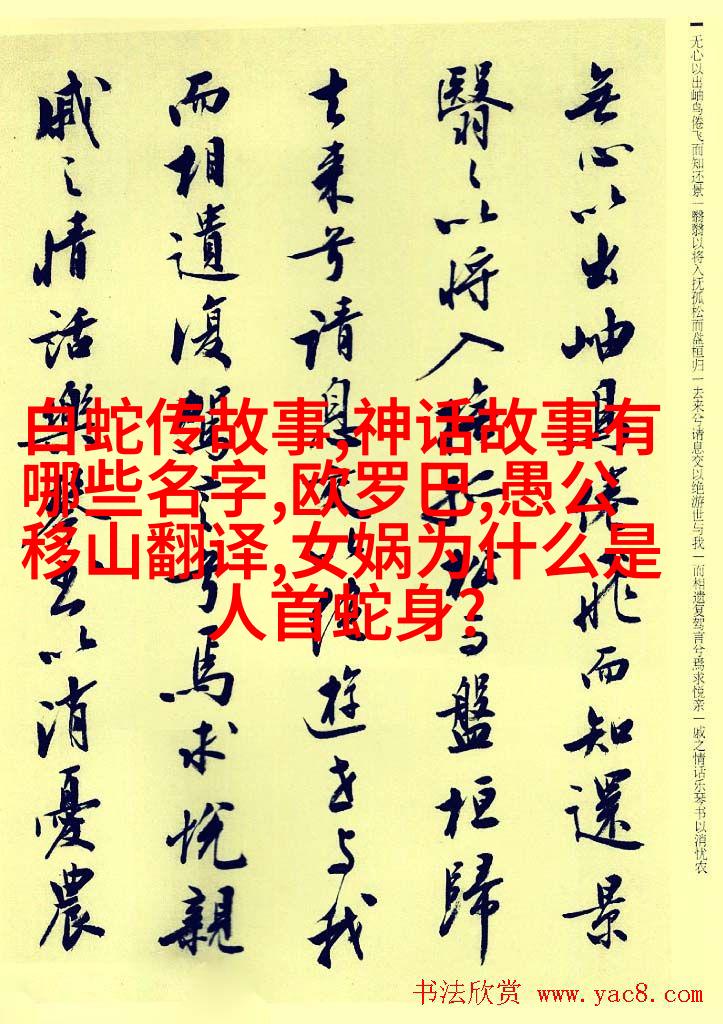 無心以出岫鳥倦飛而知還景
翳々以將入撫孤松而盤桓歸
去來兮請息交以絕遊世與我
而相遺復駕言兮焉求悅親
戚之情話樂琴書以消憂農
无心以出岫鸟倦飞而知还景一翳翳以将入抚孤松而盘桓归一去来兮请息交以绝游世与我一而相遗复驾言兮焉求悦亲一戚之情话乐琴书以消忧农
白蛇传故事,神话故事有
哪些名字,欧罗巴,愚公
移山翻译,女娲为什么是
人首蛇身?
书法欣赏 www.yac8.com